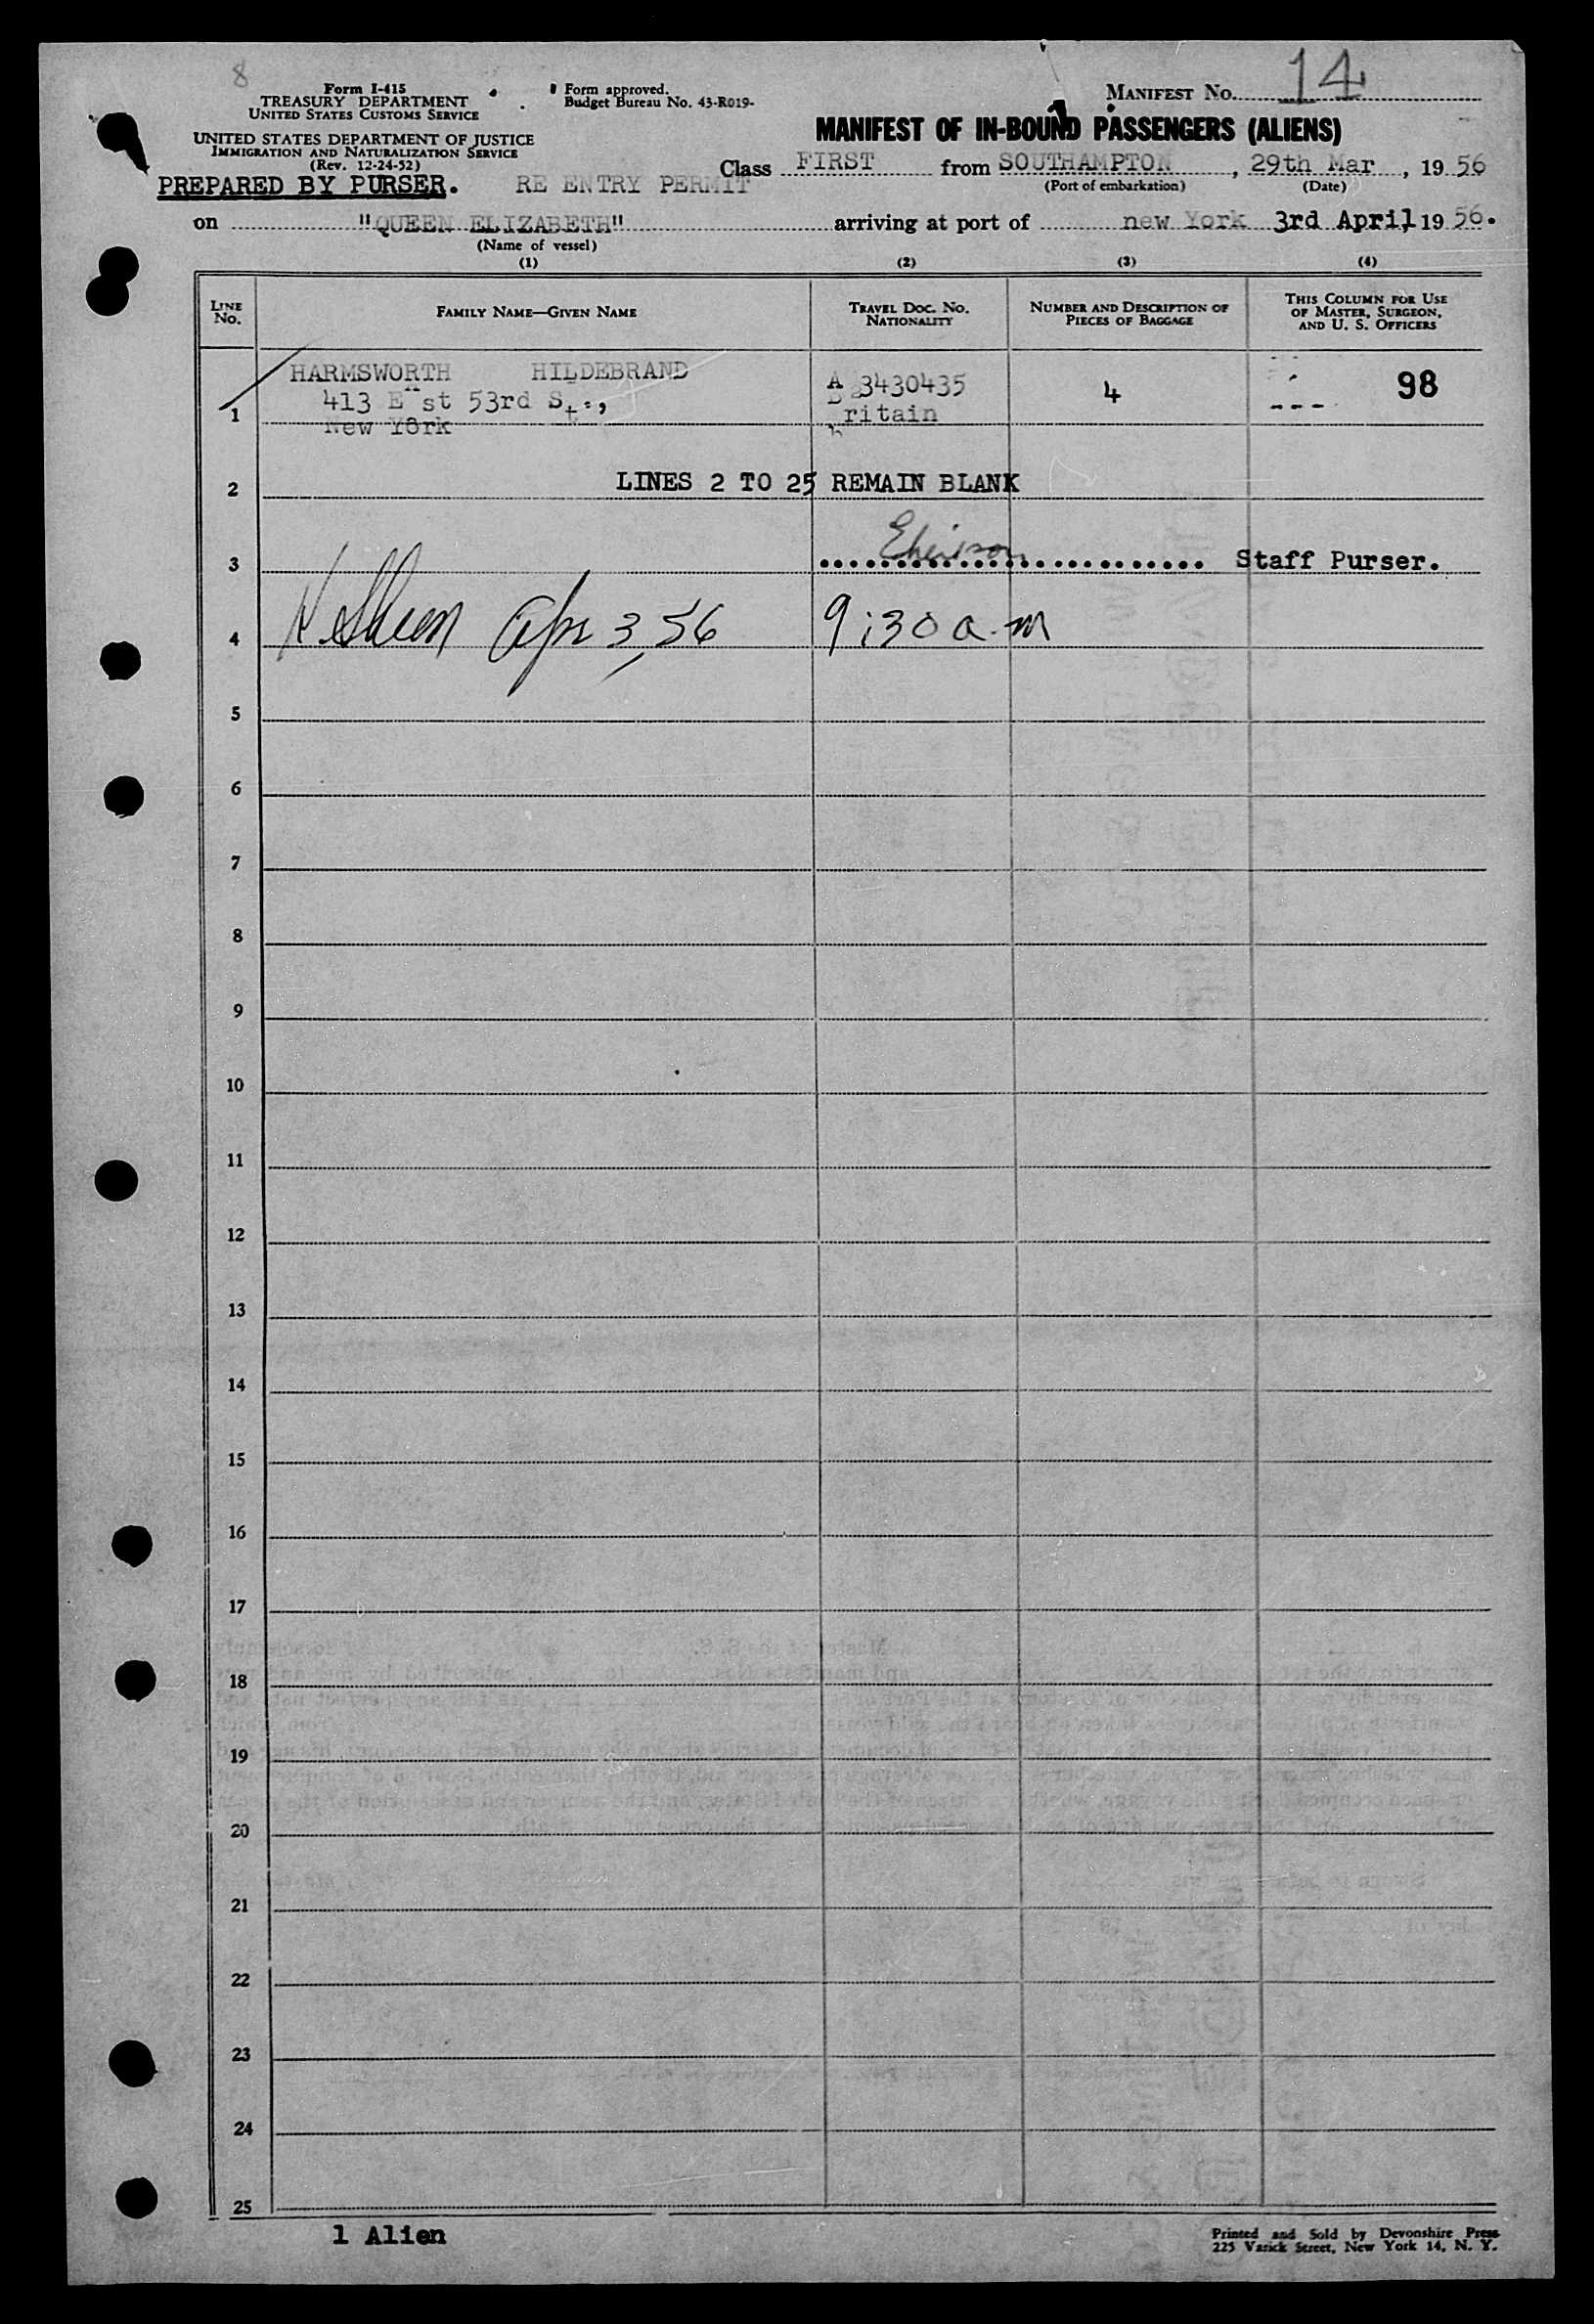 8
Form I-415
TREASURY DEPARTMENT
UNITED STATES CUSTOMS SERVICE
UNITED STATES DEPARTMENT OF JUSTICE
IMMIGRATION AND NATURALIZATION SERVICE
(Rev. 12-24-52)
PREPARED BY PURSER. RE ENTRY PERMIT
Form approved.
Budget Bureau No. 43-R019-
MANIFEST NO. 14
MANIFEST OF IN-BOUND PASSENGERS (ALIENS)
Class FIRST from SOUTHAMPTON, 29th Mar, 1956
(Port of embarkation) (Date)
on "QUEEN ELIZABETH" arriving at port of new York 3rd April, 1956.
(Name of vessel)
(1) (2) (3) (4)
LINE NO.
FAMILY NAME—GIVEN NAME
TRAVEL DOC. NO.
NATIONALITY
NUMBER AND DESCRIPTION OF
PIECES OF BAGGAGE
THIS COLUMN FOR USE
OF MASTER, SURGEON,
AND U. S. OFFICERS
1 HARMSWORTH HILDEBRAND A 3430435 4 98
413 E st 53rd St., Britain
New York
2 LINES 2 TO 25 REMAIN BLANK
3 Staff Purser.
4 Apr 3, 56 9:30 a.m
5
6
7
8
9
10
11
12
13
14
15
16
17
18
19
20
21
22
23
24
25
1 Alien
Printed and Sold by Devonshire Press
225 Varick Street, New York 14, N. Y.